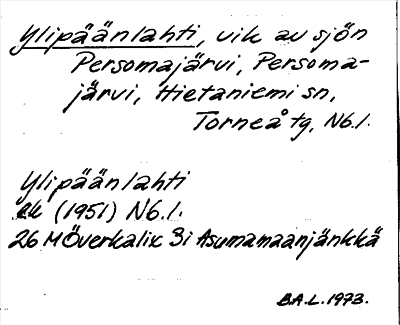 Ylipäänlahti, vik av sjön
Persomajärvi, Persoma-
järvi, Hietaniemi sn,
Torneå tg, Nb.l.
Ylipäänlahti
ek (1951) Nb.l.
26 M Överkalix 3i Asumamaanjänkkä
B.A.L. 1973.